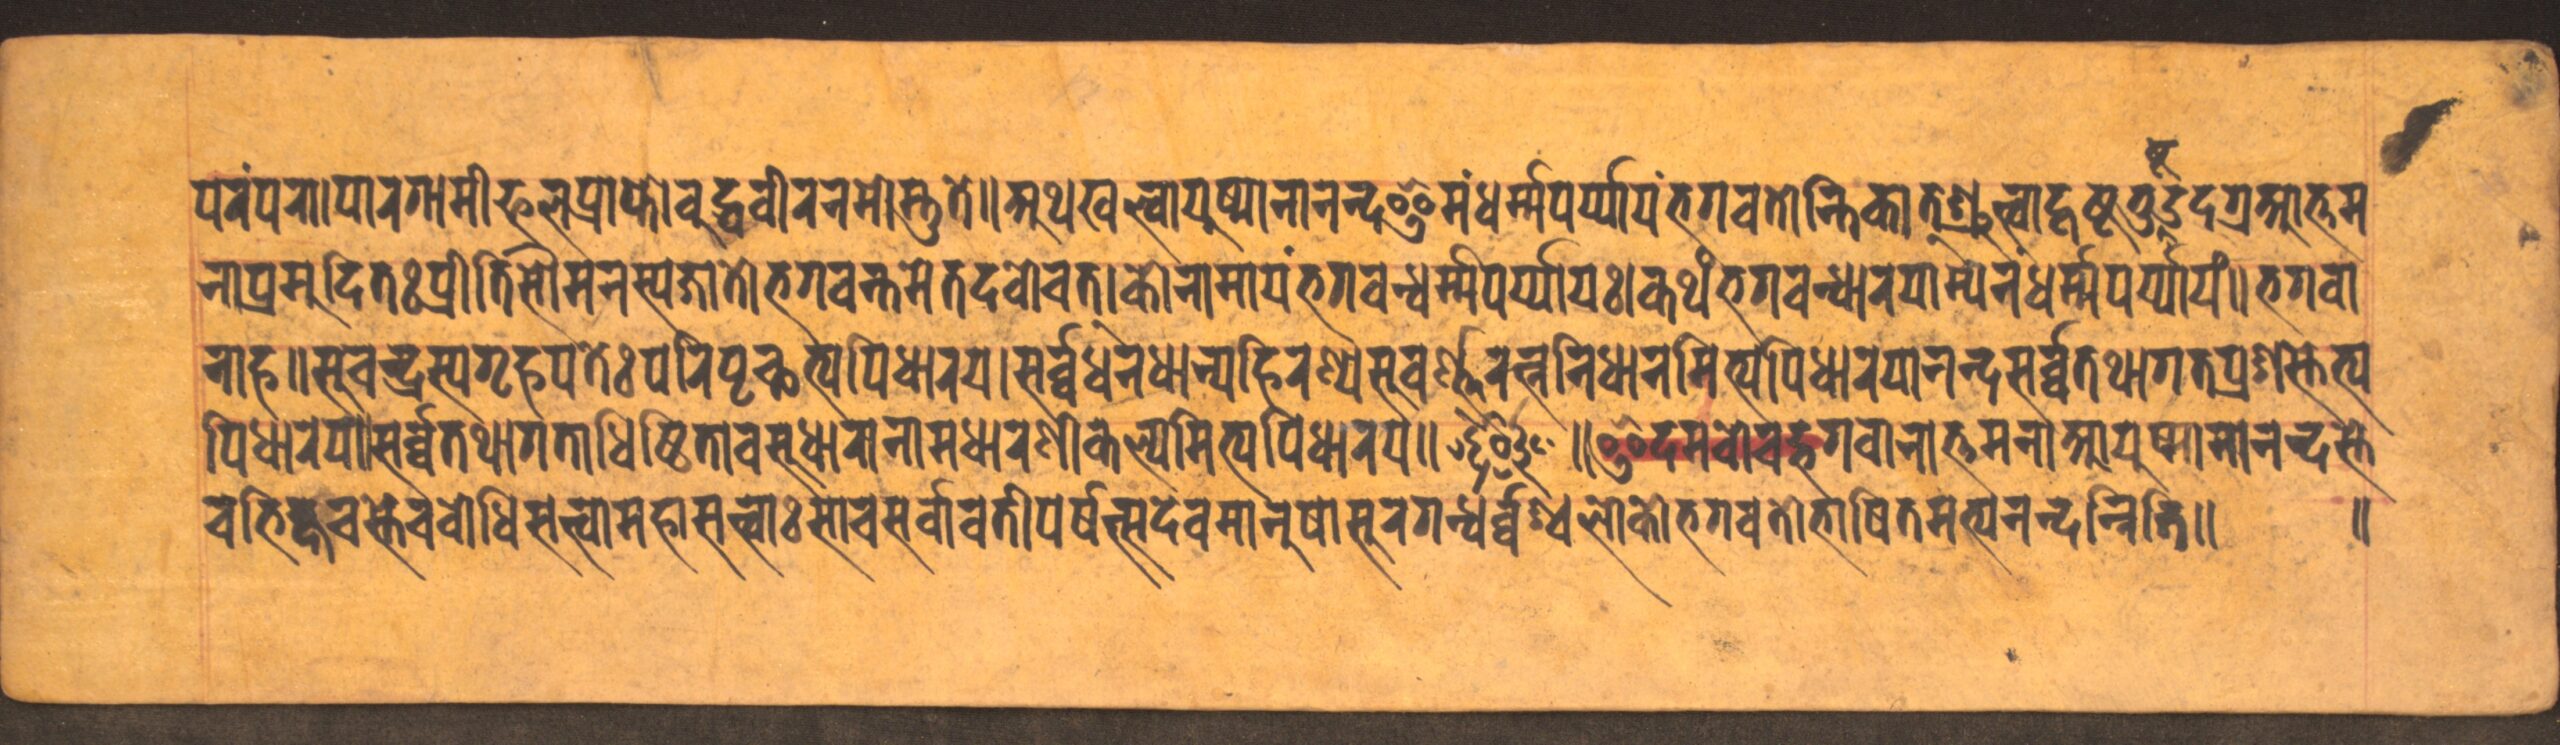 परंपरा।पारगामीफलप्राप्तोवुद्धवीरनमोस्तुते॥अथखल्वायुष्मानानन्दइमंधर्म्मपर्य्यायंभगवतोन्तिकात्श्रुत्वाहृष्टतुष्टउदग्रआत्तम
नाप्रमुदितःप्रीतिसौमनस्यजातोभगवन्तमेतदवोचत्।कोनामायंभगवन्धर्म्मपर्य्यायः।कथंभगवन्धारयाम्येनंधर्म्मपर्य्यायं॥भगवा
नाह॥सुचन्द्रस्यगृहपतेःपरिपृच्छत्यपिधारय।सर्व्वधनधान्यहिरण्यसुवर्ण्णरत्ननिधानमित्यपिधारयानन्दसर्व्वतथागतप्रशस्तेत्य
पिधारय॥सर्व्वतथागताधिष्ठितावसुधारानामधारणीकल्पमित्यपिधारय॥ ॥इदमवोचद्भगवानात्तमनाआयुष्मामानन्दस्ते
चभिक्षुवस्तेचवोधिसत्त्वामहासत्त्वाःसाचसर्वावतीपर्षत्सदेवमानुषासुरगन्धर्व्वश्चलोकोभगवतोभाषितमभ्यनन्दन्निति॥ ॥